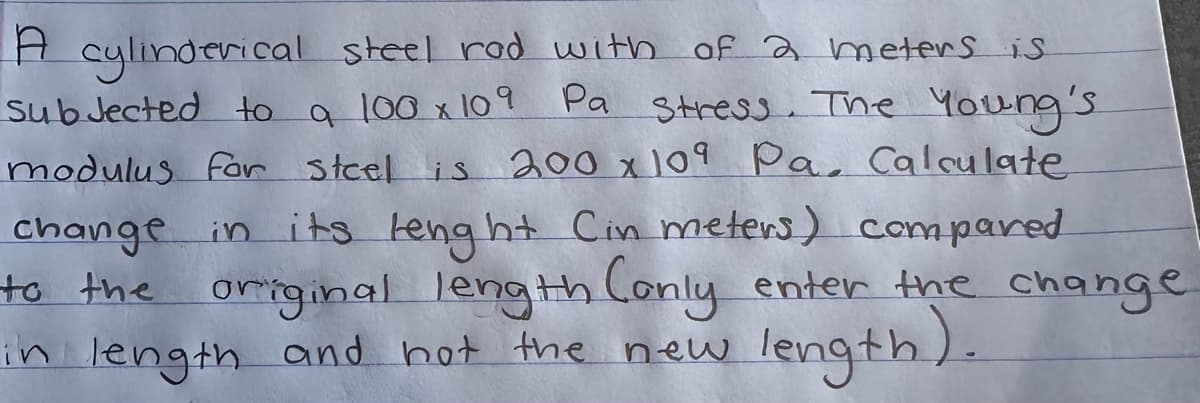 A cylinderical steel rod with of 2 meters is
subJected to a 100 x 10⁹ Pa stress. The Young's
modulus for steel is 200 x 10⁹ Pa. Calculate
change in its lenght (in meters) compared
to the original length (only enter the change
in length and not the new length).